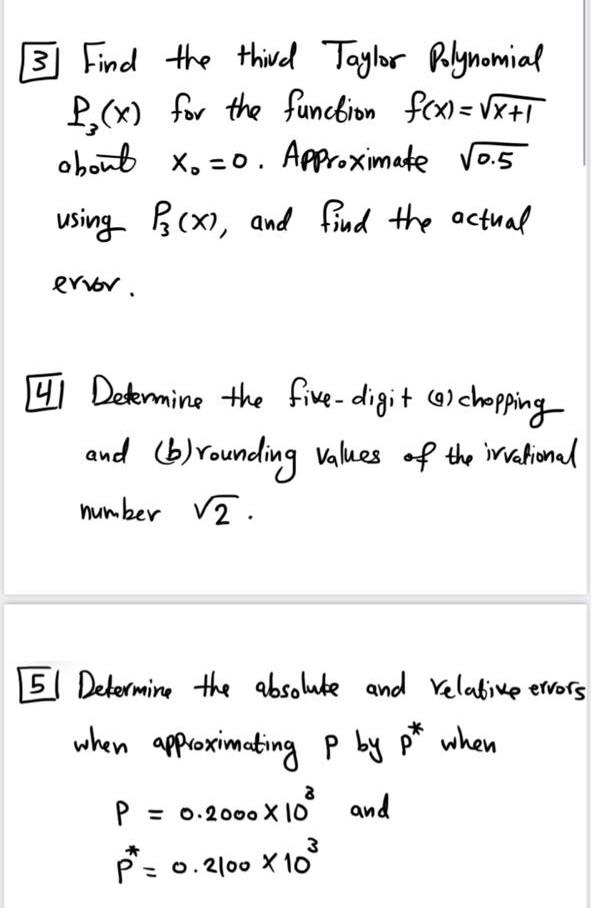 3 Find the third Taylor Polynomial
P₃(x) for the function f(x) = √x+1
about x₀ = 0. Approximate √0.5
using P₃(x), and find the actual
error.
4 Determine the five-digit (a) chopping
and (b) rounding values of the irrational
number √2.
5 Determine the absolute and relative errors
when approximating P by P* when
P = 0.2000 X 10³ and
P* = 0.2100 X 10³